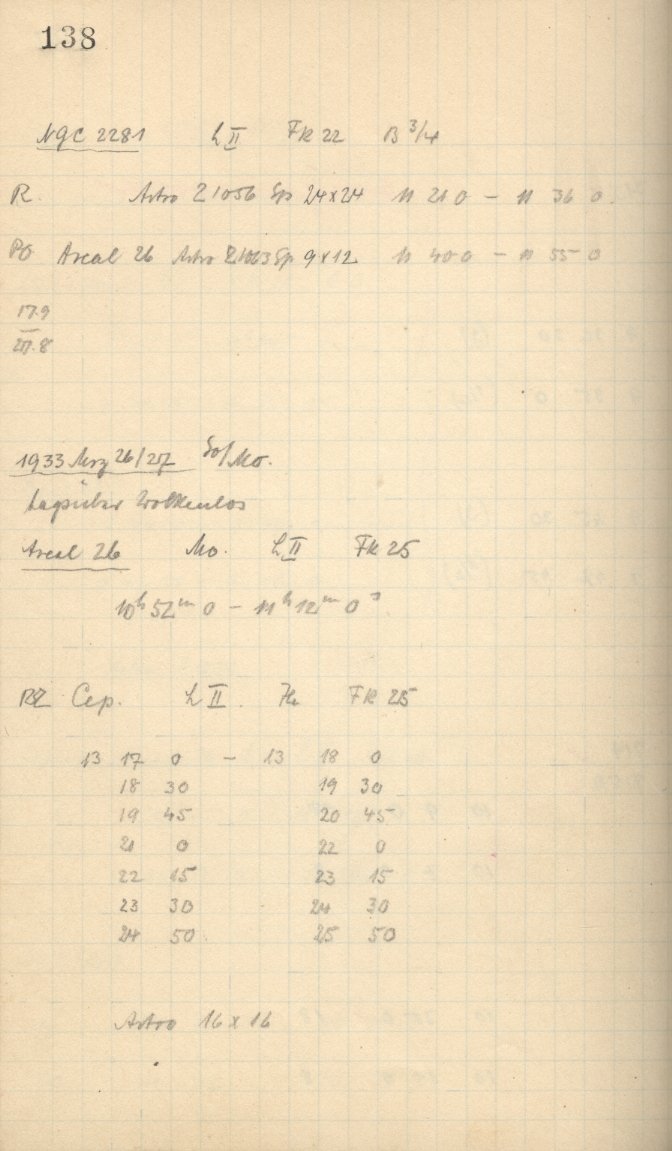 138
NGC 2281 L II FK 22 B 3/4
R. Astro 21056 Sp 24x24 11 21 0 – 11 36 0.
PO Areal 26 Astro 21063 Sp 9x12 11 40 0 – 11 55 0
17.9
27.8
1933 Mrz 26/27 So/Mo.
tagsüber Wolkenlos
Areal 26 Mo. L II FK 25
10h 52m 0 – 11h 12m 0s
RZ Cep. L II FK 25
13 17 0 – 13 18 0
18 30 19 30
19 45 20 45
21 0 22 0
22 15 23 15
23 30 24 30
24 50 25 50
Astro 16x16